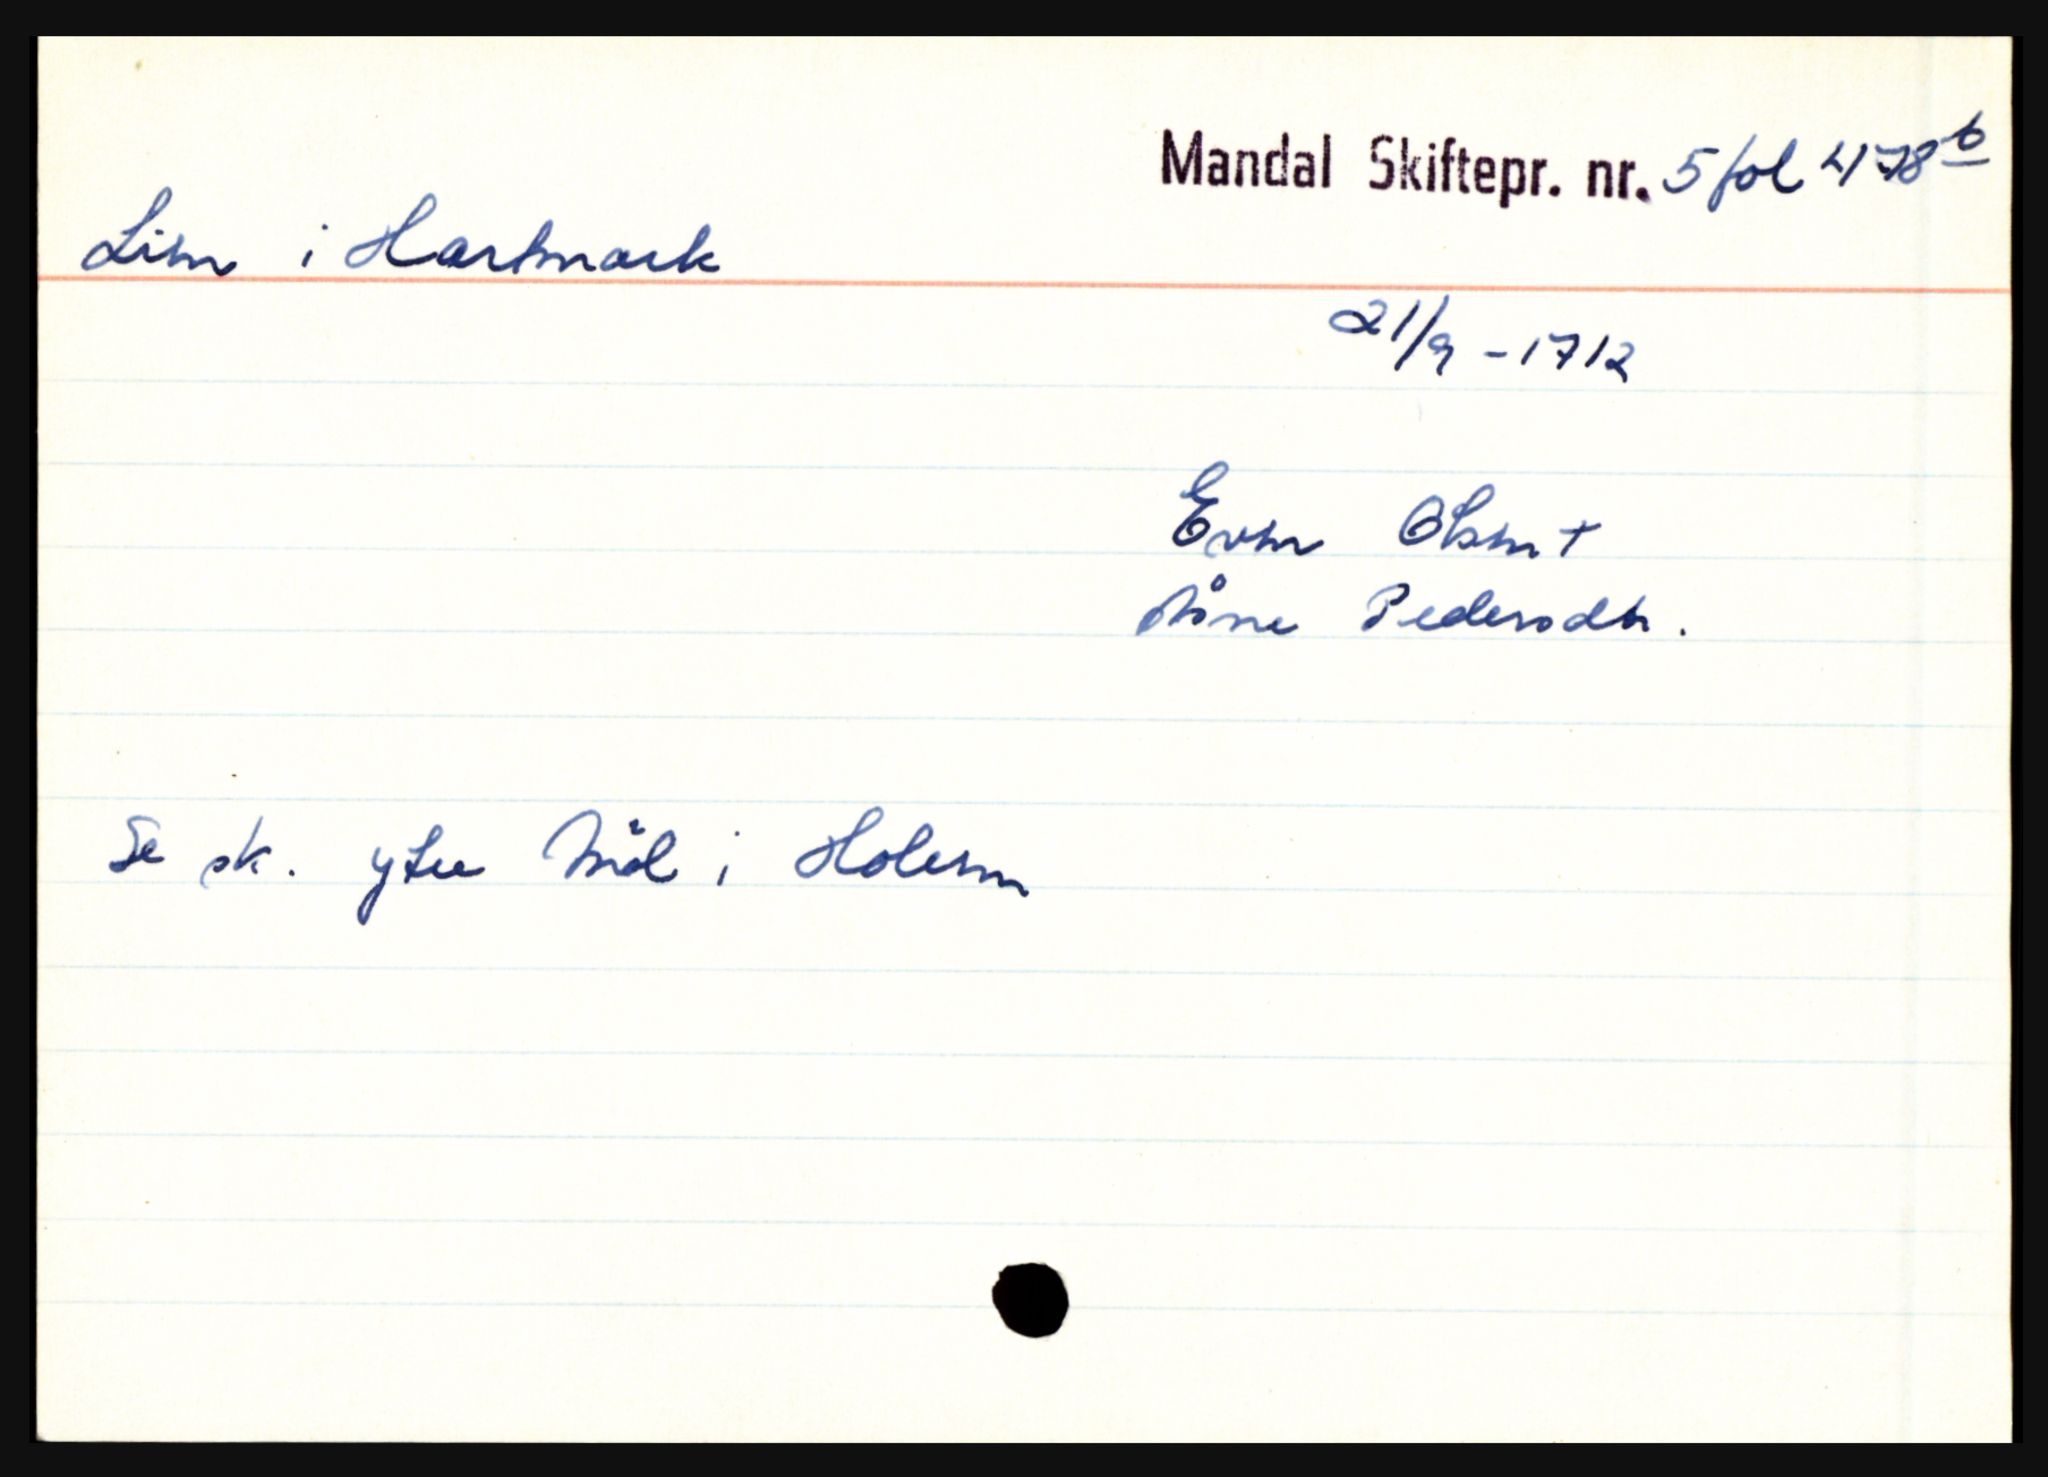 Mandal Skiftepr. nr. 5 fol 478 b
Lien i Hartmark
21/9 - 1712
Even Olsen +
Åne Pedersdtr.
Se sk. ytre Møl i Holum